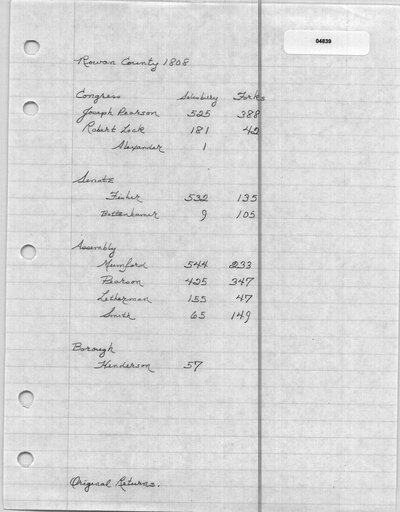 04839
Rowan County 1808
Congress Salisbury Forks
Joseph Pearson 525 388
Robert Lock 181 42
Alexander 1
Senate
Fisher 532 135
9 105
Assembly
Mumford 544 233
Pearson 425 347
Letherman 155 47
Smith 65 149
Borough
Henderson 57
Original Returns.